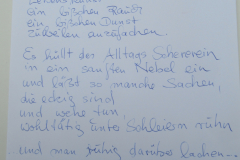 ein bißchen Rauch
ein bißchen Dunst
zuweilen anzufachen.
Es hüllt der Alltags Scherereien
in ein sanften Nebel ein
und läßt so manche Sachen,
die eckig sind
und wehe tun,
wohltätig unter Schleiern ruhn
und man ruhig darüber lachen